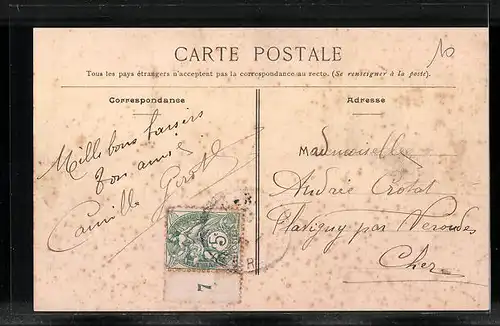 10
CARTE POSTALE
Tous les pays étrangers n'acceptent pas la correspondance au recto. (Se renseigner à la poste).
Correspondance
Adresse
Mille bons baisers
Ton amie
Camille
Mademoiselle
Crotat
Flavigny par Nerondes
Cher
5
7